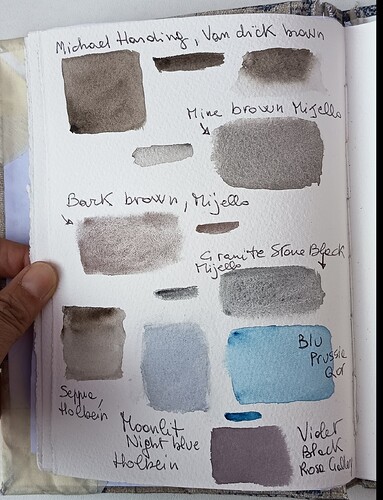 Michael Harding, Van dick brown
Mine brown Mijello
Bark brown, Mijello
Granite Stone Black
Mijello
Blu
Prussia
Qor
Seppia,
Holbein
Moonlit
Night blue
Holbein
Violet
Black
Rosa Gallery